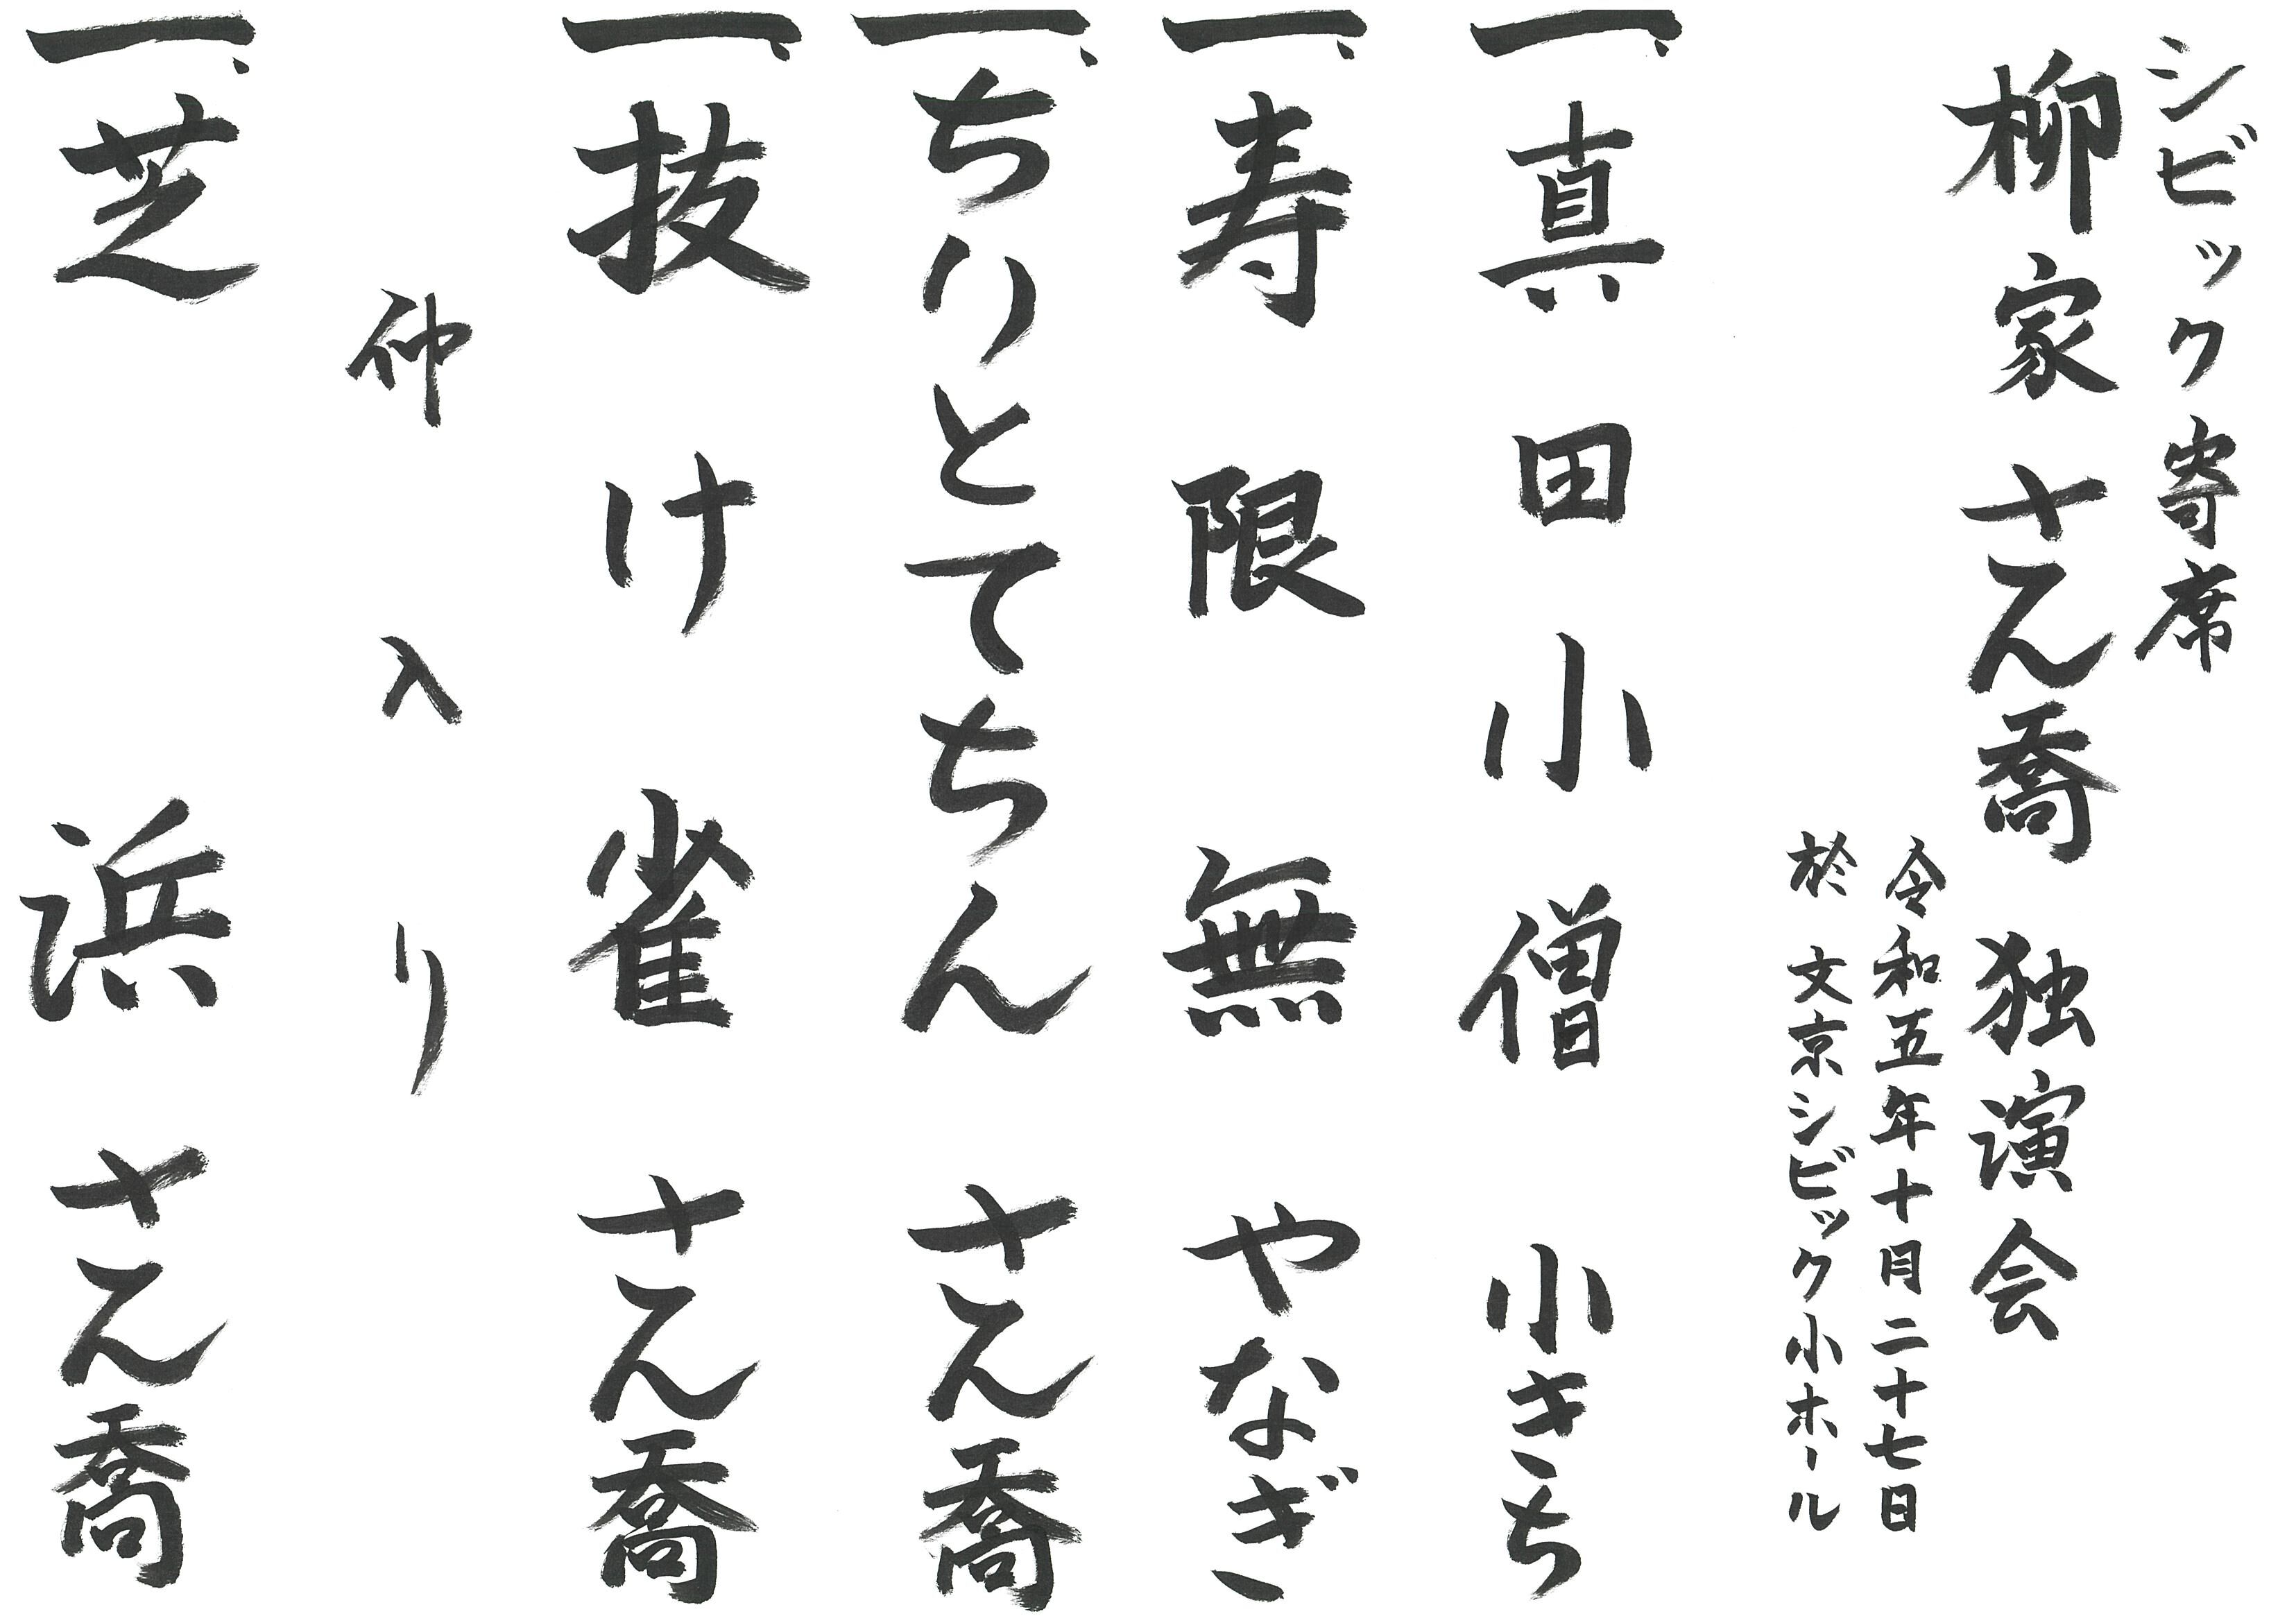 シビック寄席
柳家さん喬 独演会
令和五年十月二十七日
於 文京シビック小ホール
一、真田小僧 小きち
一、寿限無 やなぎ
一、ちりとてちん さん喬
一、抜け雀 さん喬
仲入り
一、芝浜 さん喬